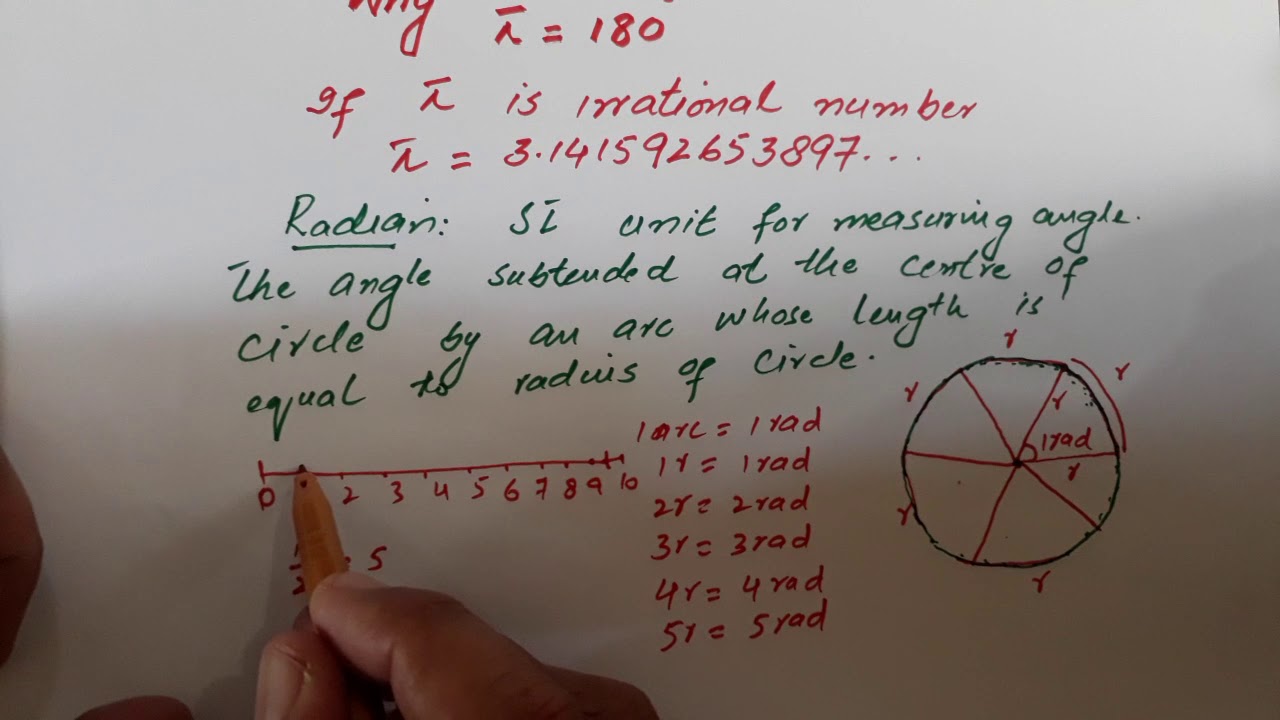 Why π = 180°
If π is irrational number
π = 3.141592653897...
Radian: SI unit for measuring angle.
The angle subtended at the centre of
circle by an arc whose length is
equal to radius of circle.
0 2 3 4 5 6 7 8 9 10
2 5
1 arc = 1 rad
1r = 1 rad
2r = 2 rad
3r = 3 rad
4r = 4 rad
5r = 5 rad
r
r r
r
1 rad
r
r
r